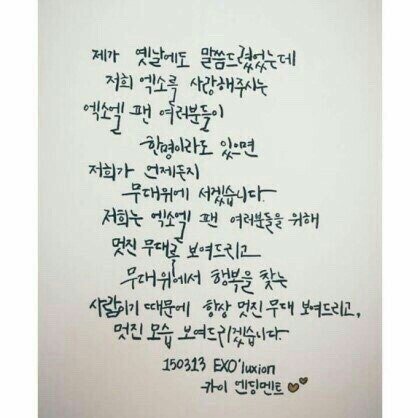 제가 옛날에도 말씀드렸었는데
저희 엑소를 사랑해주시는
엑소엘 팬 여러분들이
한명이라도 있으면
저희가 언제든지
무대위에 서겠습니다.
저희는 엑소엘 팬 여러분들을 위해
멋진 무대를 보여드리고
무대위에서 행복을 찾는
사람이기 때문에 항상 멋진 무대 보여드리고,
멋진 모습 보여드리겠습니다.
150313 EXO'luxion
카이 엔딩멘트